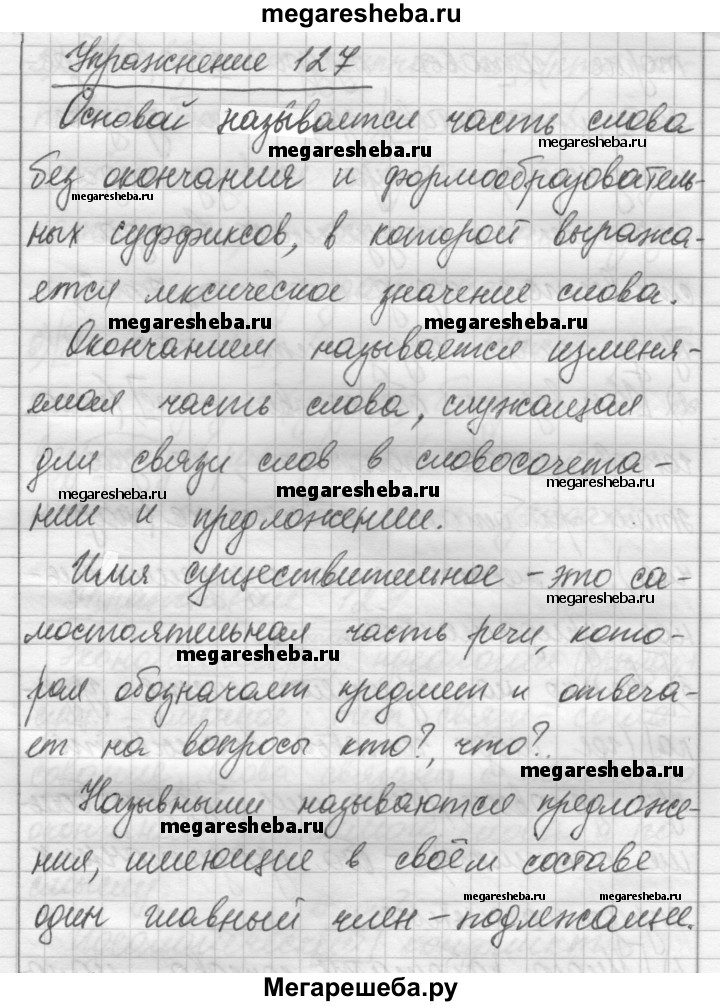 megaresheba.ru
Упражнение 127
Основой называется часть слова
megaresheba.ru
megaresheba.ru
без окончания и формообразователь-
megaresheba.ru
ных суффиксов, в которой выража-
ется лексическое значение слова.
megaresheba.ru
megaresheba.ru
Окончанием называется изменя-
емая часть слова, служащая
для связи слов в словосочета-
megaresheba.ru
megaresheba.ru
megaresheba.ru
нии и предложении.
Имя существительное - это са-
megaresheba.ru
мостоятельная часть речи, кото-
megaresheba.ru
рая обозначает предмет и отвеча-
ет на вопросы кто?, что?.
megaresheba.ru
Назывными называются предложе-
megaresheba.ru
ния, имеющие в своём составе
megaresheba.ru
megaresheba.ru
один главный член - подлежащее.
Мегарешеба.ру